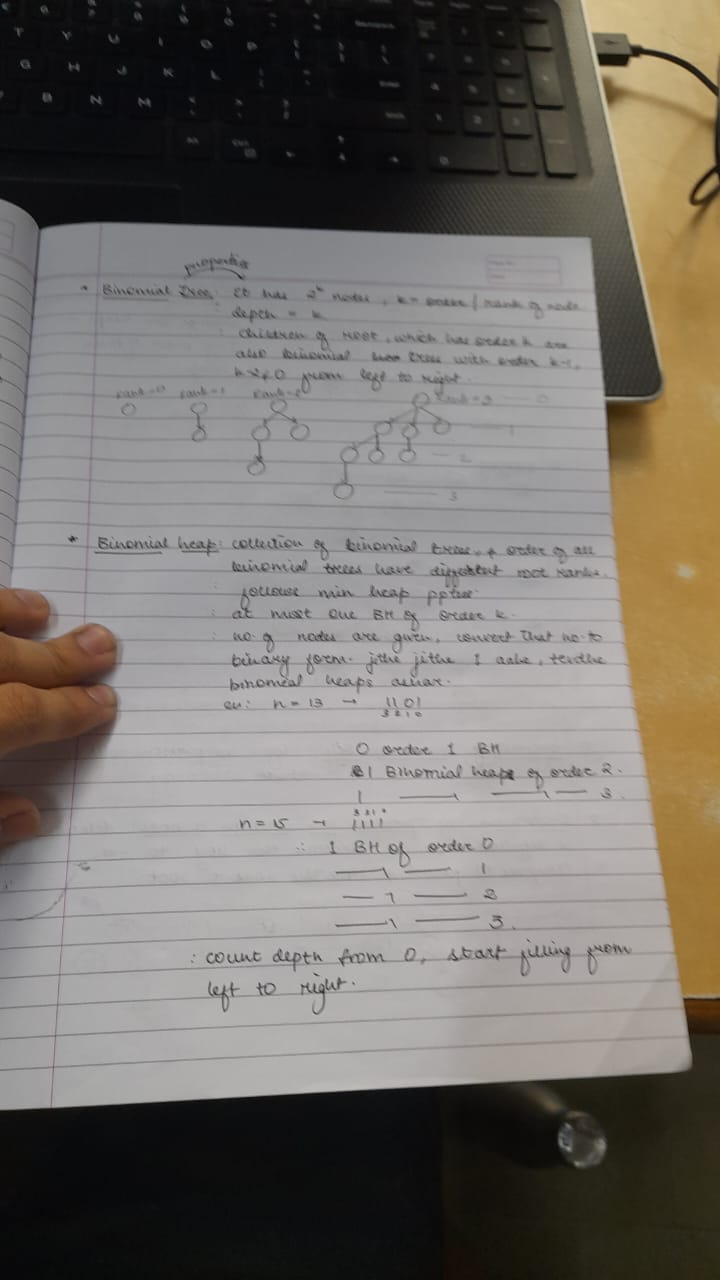 properties
* Binomial Tree: It has 2^k nodes, k = order / rank of node
: depth = k
: children of root, which has order k are
also binomial trees with order k-1,
k-2, 0 from left to right.
rank=0 rank=1 rank=2 rank=3 0
1
2
3
* Binomial heap: collection of binomial trees, & order of all
binomial trees have different root ranks.
: follows min heap ppties.
: at most one BH of order k.
: no. of nodes are given, convert that no. to
binary form. jithe jithe 1 aahe, tendhe
binomial heaps astar.
ex: n = 13 → 1101
3 2 1 0
0 order 1 BH
1 Binomial heap of order 2.
1 —— —— — 3.
3 2 1 0
n = 15 → 1111
∴ 1 BH of order 0
—1 — 1
— 1 — 2
—1 — 3.
: count depth from 0, start filling from
left to right.
T Y U I O P
G H J K L
B N M